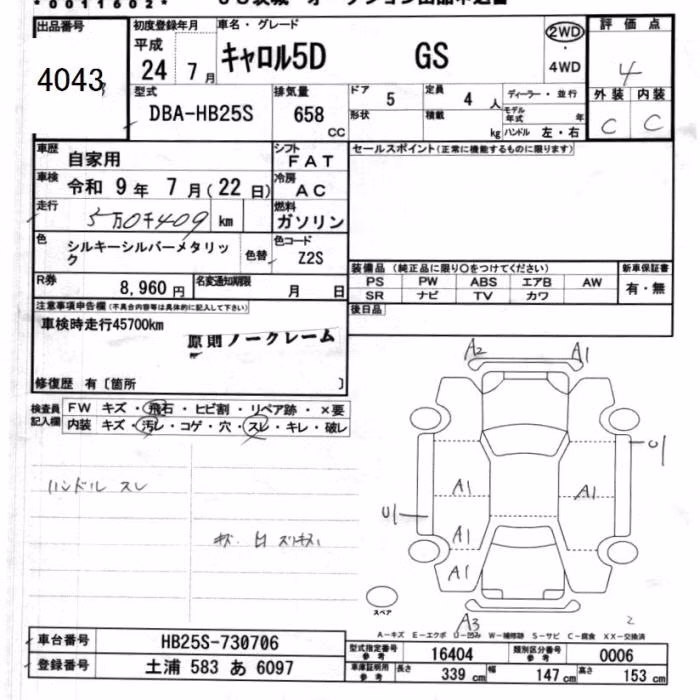 *0011602*
出品番号 初度登録年月 車名・グレード 2WD 評価点
平成 キャロル5D GS ・
4043 24 7月 4WD 4
型式 排気量 ドア 5 定員 4人 ディーラー・並行 外装 内装
DBA-HB25S 658 CC 形状 積載 kg モデル年式 年 ハンドル 左・右 C C
車歴 自家用 シフト FAT セールスポイント(正常に機能するものに限ります)
車検 令和 9年 7月(22日) 冷房 AC
走行 5万0千409 km 燃料 ガソリン
色 シルキーシルバーメタリック 色替 色コード Z2S
装備品 (純正品に限り○をつけてください) 新車保証書
PS PW ABS エアB AW 有・無
SR ナビ TV カワ
R券 8,960円 名変通知期限 月 日 後日品
注意事項申告欄(不具合内容等は具体的に記入して下さい)
車検時走行45700km
原則ノークレーム
修復歴 有〔箇所 〕
検査員 FW キズ・飛石・ヒビ割・リペア跡・×要
記入欄 内装 キズ・汚レ・コゲ・穴・スレ・キレ・破レ
ハンドル スレ
A2 A1
U1
A1 A1
U1
A1
A1
スペア
A3
2
A-キズ E-エクボ U-凹み W-補修跡 S-サビ C-腐食 XX-交換済
車台番号 HB25S-730706 型式指定番号 参考 16404 類別区分番号 参考 0006
登録番号 土浦 583 あ 6097 車庫証明用 参考 長さ 339cm 幅 147cm 高さ 153cm